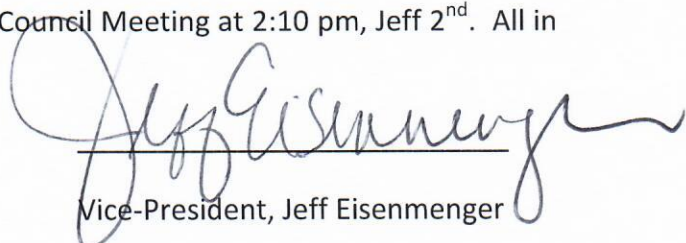 Council Meeting at 2:10 pm, Jeff 2nd. All in
Jeff Eisenmenger
Vice-President, Jeff Eisenmenger